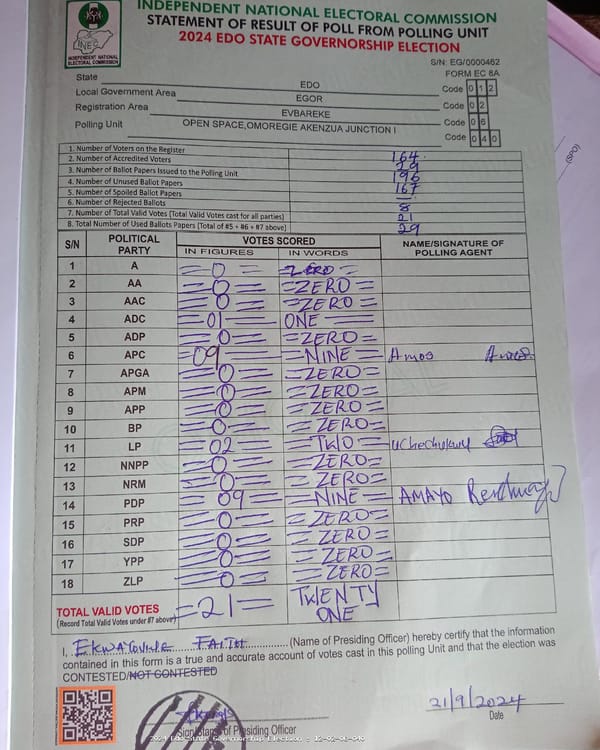 INDEPENDENT NATIONAL ELECTORAL COMMISSION
STATEMENT OF RESULT OF POLL FROM POLLING UNIT
2024 EDO STATE GOVERNORSHIP ELECTION
INEC
INDEPENDENT NATIONAL
ELECTORAL COMMISSION
S/N: EG/0000462
FORM EC 8A
State EDO Code 0 1 2
Local Government Area EGOR Code 0 2
Registration Area EVBAREKE Code 0 6
Polling Unit OPEN SPACE,OMOREGIE AKENZUA JUNCTION I Code 0 4 0
(SPO)
1. Number of Voters on the Register 164
2. Number of Accredited Voters 29
3. Number of Ballot Papers Issued to the Polling Unit 196
4. Number of Unused Ballot Papers 167
5. Number of Spoiled Ballot Papers —
6. Number of Rejected Ballots 8
7. Number of Total Valid Votes (Total Valid Votes cast for all parties) 21
8. Total Number of Used Ballots Papers (Total of #5 + #6 + #7 above) 29
S/N POLITICAL PARTY VOTES SCORED NAME/SIGNATURE OF POLLING AGENT
IN FIGURES IN WORDS
1 A =0= =ZERO=
2 AA =0= =ZERO=
3 AAC =0= =ZERO=
4 ADC =01= ONE =
5 ADP =0= =ZERO=
6 APC =09= =NINE= Amos Amos
7 APGA =0= =ZERO=
8 APM =0= =ZERO=
9 APP =0= =ZERO=
10 BP =0= =ZERO=
11 LP =02= =TWO= Uchechukwu
12 NNPP =0= =ZERO=
13 NRM =0= =ZERO=
14 PDP =09= =NINE= AMAYO
15 PRP =0= =ZERO=
16 SDP =0= =ZERO=
17 YPP =0= =ZERO=
18 ZLP =0= =ZERO=
TOTAL VALID VOTES =21= TWENTY ONE
(Record Total Valid Votes under #7 above)
I, FAITH (Name of Presiding Officer) hereby certify that the information
contained in this form is a true and accurate account of votes cast in this polling Unit and that the election was
CONTESTED/NOT CONTESTED
21/9/2024
Sign/Stamp of Presiding Officer Date
2024 Edo State Governorship Election - 12-02-06-040